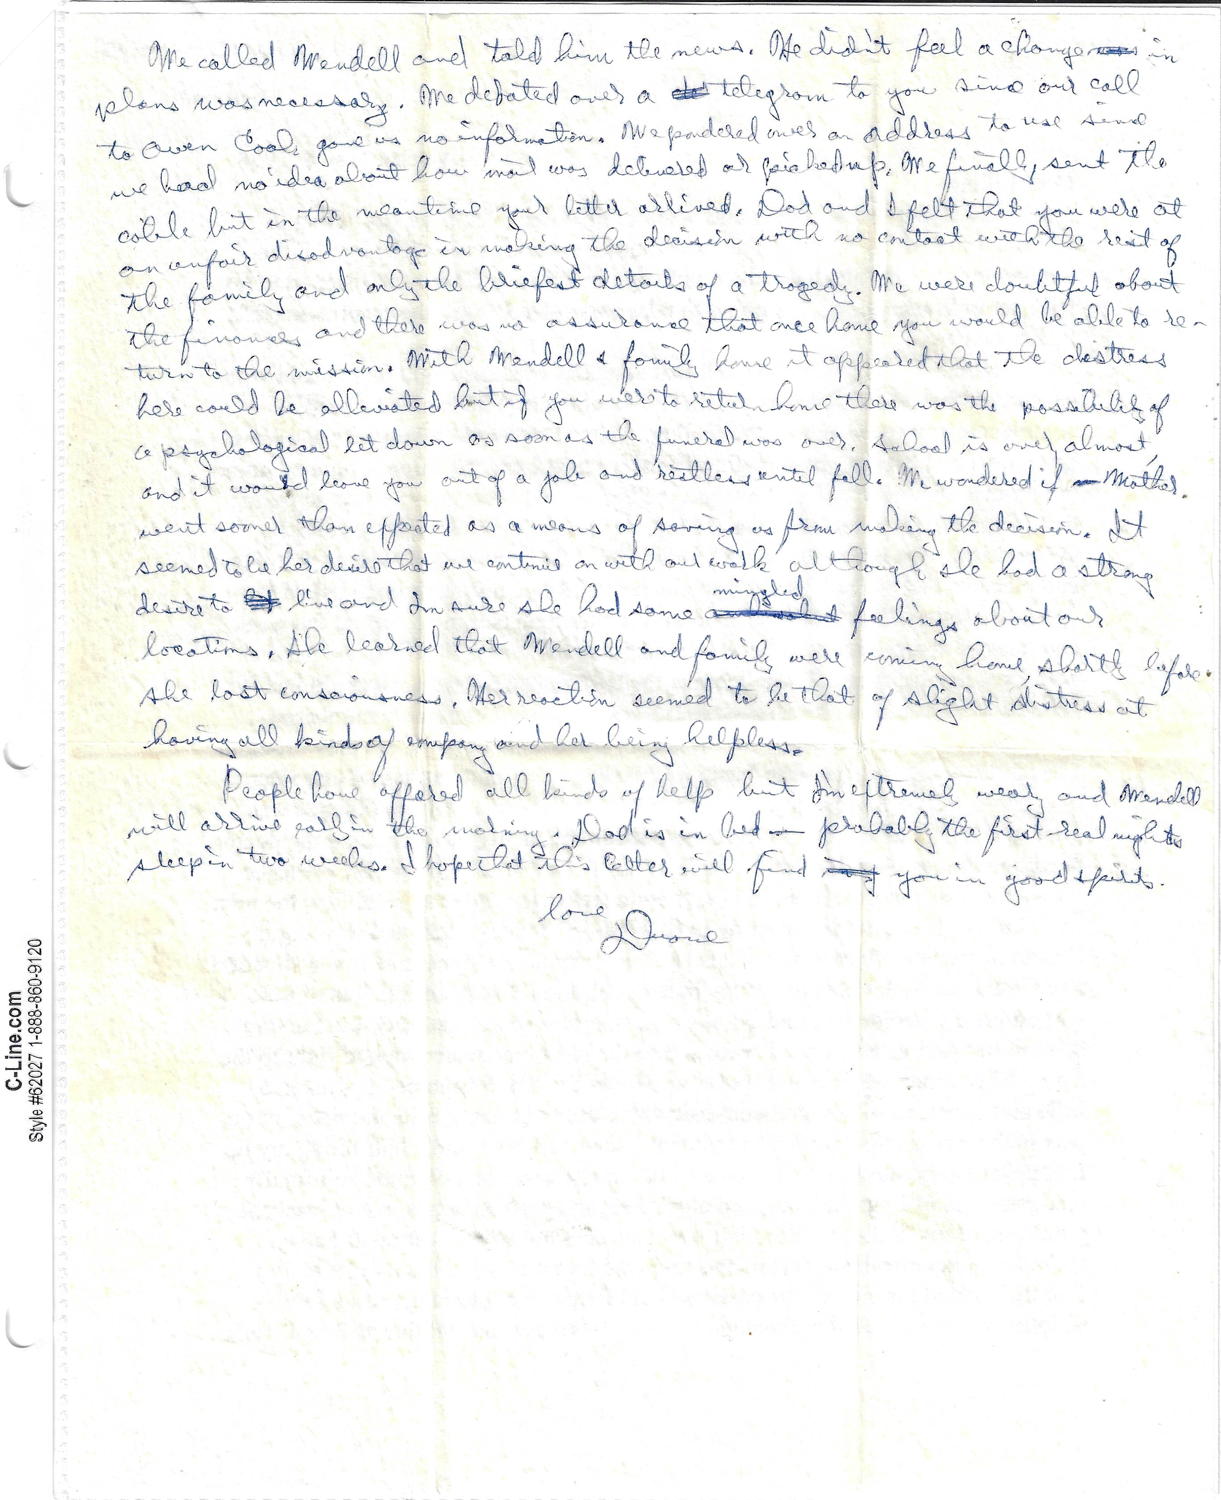 We called Wendell and told him the news. He didn't feel a change in
plans was necessary. We debated over a telegram to you since our call
to Owen Cook gave us no information. We pondered over an address to use since
we had no idea about how mail was delivered or picked up. We finally sent the
cable but in the meantime your letter arrived. Dad and I felt that you were at
an unfair disadvantage in making the decision with no contact with the rest of
the family and only the briefest details of a tragedy. We were doubtful about
the finances and there was no assurance that once home you would be able to re-
turn to the mission. With Wendell & family home it appeared that the distress
here could be alleviated but if you were to return home there was the possibility of
a psychological let down as soon as the funeral was over. School is over almost,
and it would leave you out of a job and restless until fall. We wondered if Mother
went sooner than expected as a means of saving us from making the decision. It
seemed to be her desire that we continue on with our work although she had a strong
desire to live and I'm sure she had some mingled feelings about our
locations. She learned that Wendell and family were coming home, shortly before
she lost consciousness. Her reaction seemed to be that of slight distress at
having all kinds of company and her being helpless.
People have offered all kinds of help but I'm extremely weary and Wendell
will arrive early in the morning. Dad is in bed — probably the first real nights
sleep in two weeks. I hope that this letter will find you in good spirits.
love
Duane
C-Line.com
Style #62027 1-888-860-9120